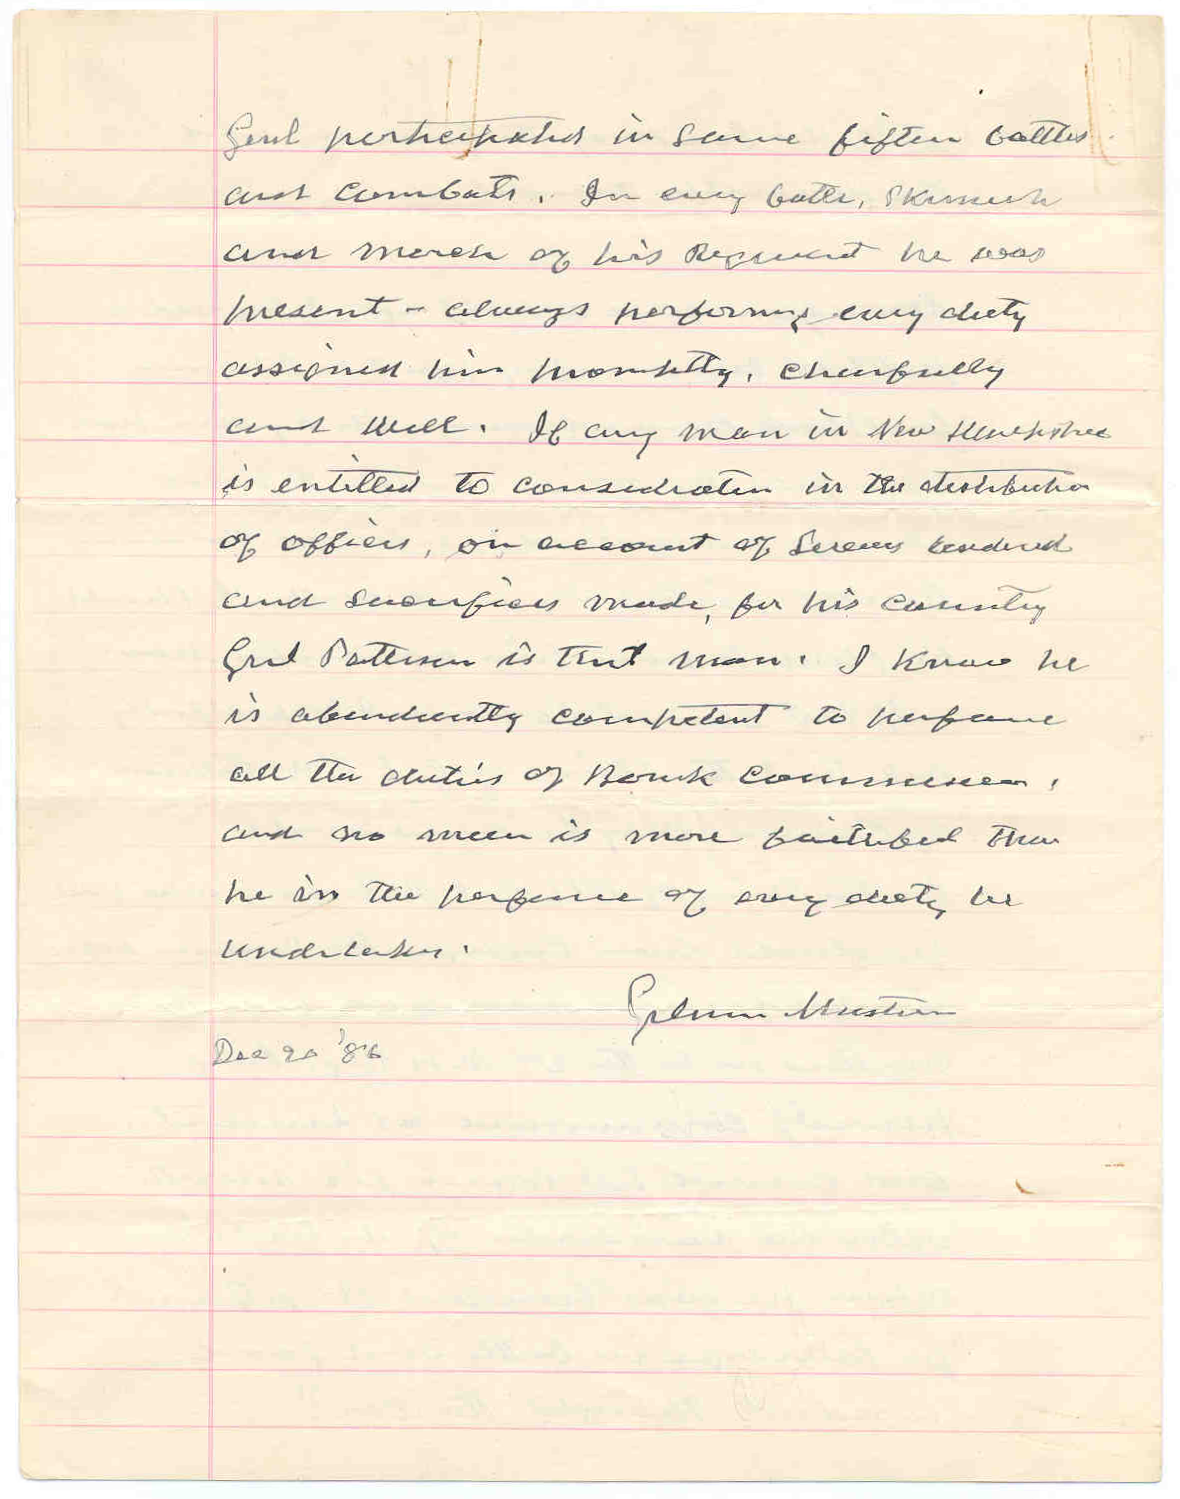 Genl participated in some fifteen battles
and combats. In every battle, Skirmish
and march of his Regiment he was
present - always performing every duty
assigned him promptly, cheerfully
and well. If any man in New Hampshire
is entitled to consideration in the distribution
of offices, on account of Services rendered
and sacrifices made, for his country
Genl Patterson is that man. I know he
is abundantly competent to perform
all the duties of Bank Commissioner,
and no man is more faithful than
he in the performance of every duty he
undertakes.
Gilman Marston
Dec 20 '86